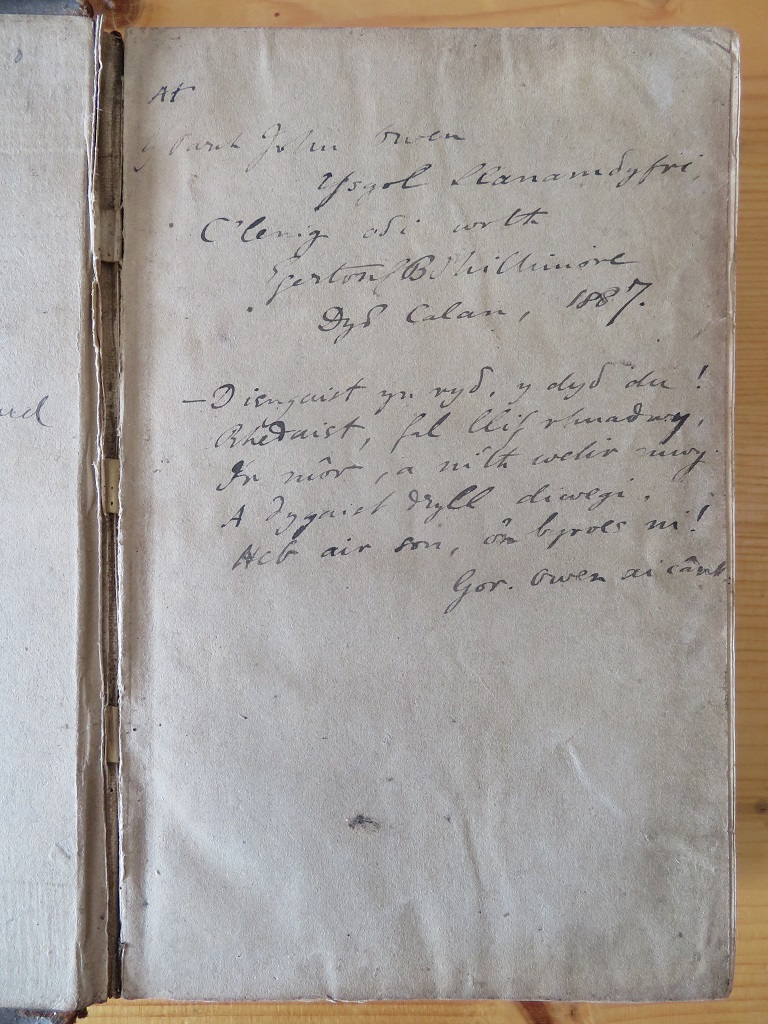 At
y Parch John Owen
Ysgol Llanamđyfri,
C'lenig ođi wrth
Egerton G B Phillimore
Dyđ Calan, 1887.
— Diengaist yn ryđ, y dyđ du!
Rhedaist, fal llif rhuadwy,
I'r môr, a ni'th welir mwy.
A đygaist đryll diwegi,
Heb air son, o'n hyroes ni!
Gor. Owen ai cânt.
ud